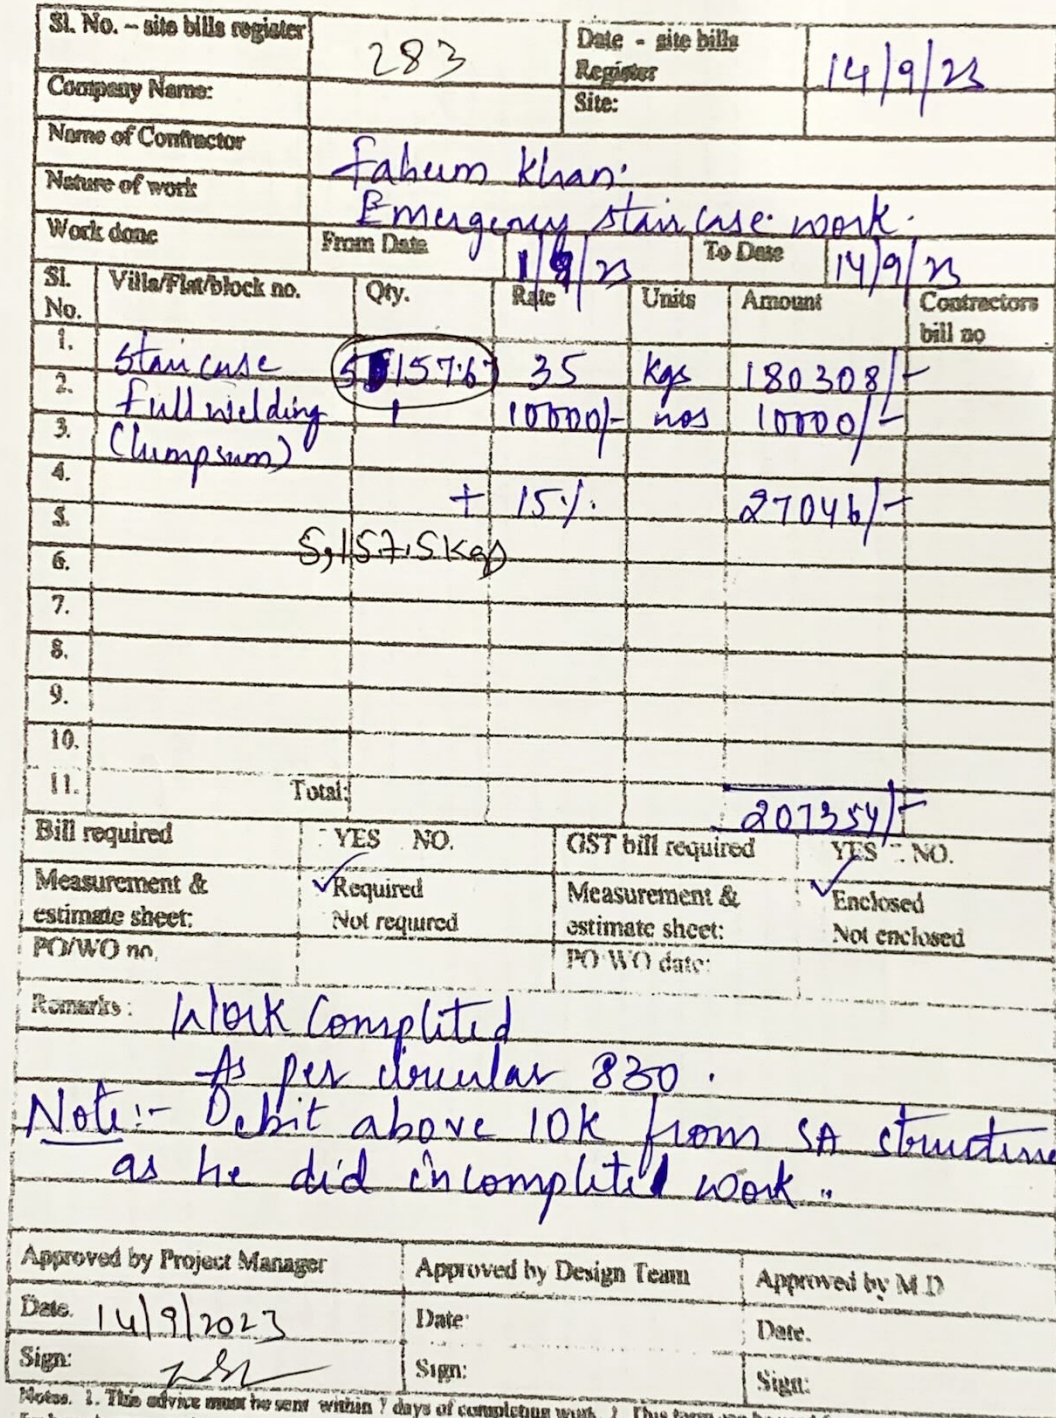 Sl. No. – site bills register 283 Date - site bills Register 14/9/23
Company Name: Site:
Name of Contractor Faheem Khan.
Nature of work Emergency staircase work.
Work done From Date 1/9/23 To Date 14/9/23
Sl. No. Villa/Flat/block no. Qty. Rate Units Amount Contractors bill no
1. Staircase 5157.67 35 Kgs 180308/-
2. full welding 1 10000/- nos 10000/-
3. (lumpsum)
4. + 15%. 27046/-
5. 5,157.5 Kgs
6.
7.
8.
9.
10.
11. Total: 207354/-
Bill required YES NO. GST bill required YES NO.
Measurement & estimate sheet: Required Not required Measurement & estimate sheet: Enclosed Not enclosed
PO/WO no. PO WO date:
Remarks: Work Completed
As per circular 830.
Note:- Debit above 10K from SA structure
as he did incomplete work..
Approved by Project Manager Approved by Design Team Approved by M.D
Date. 14/9/2023 Date: Date.
Sign: Sign: Sign:
Notes. 1. This advice must be sent within 7 days of completing work. 2. This form can be